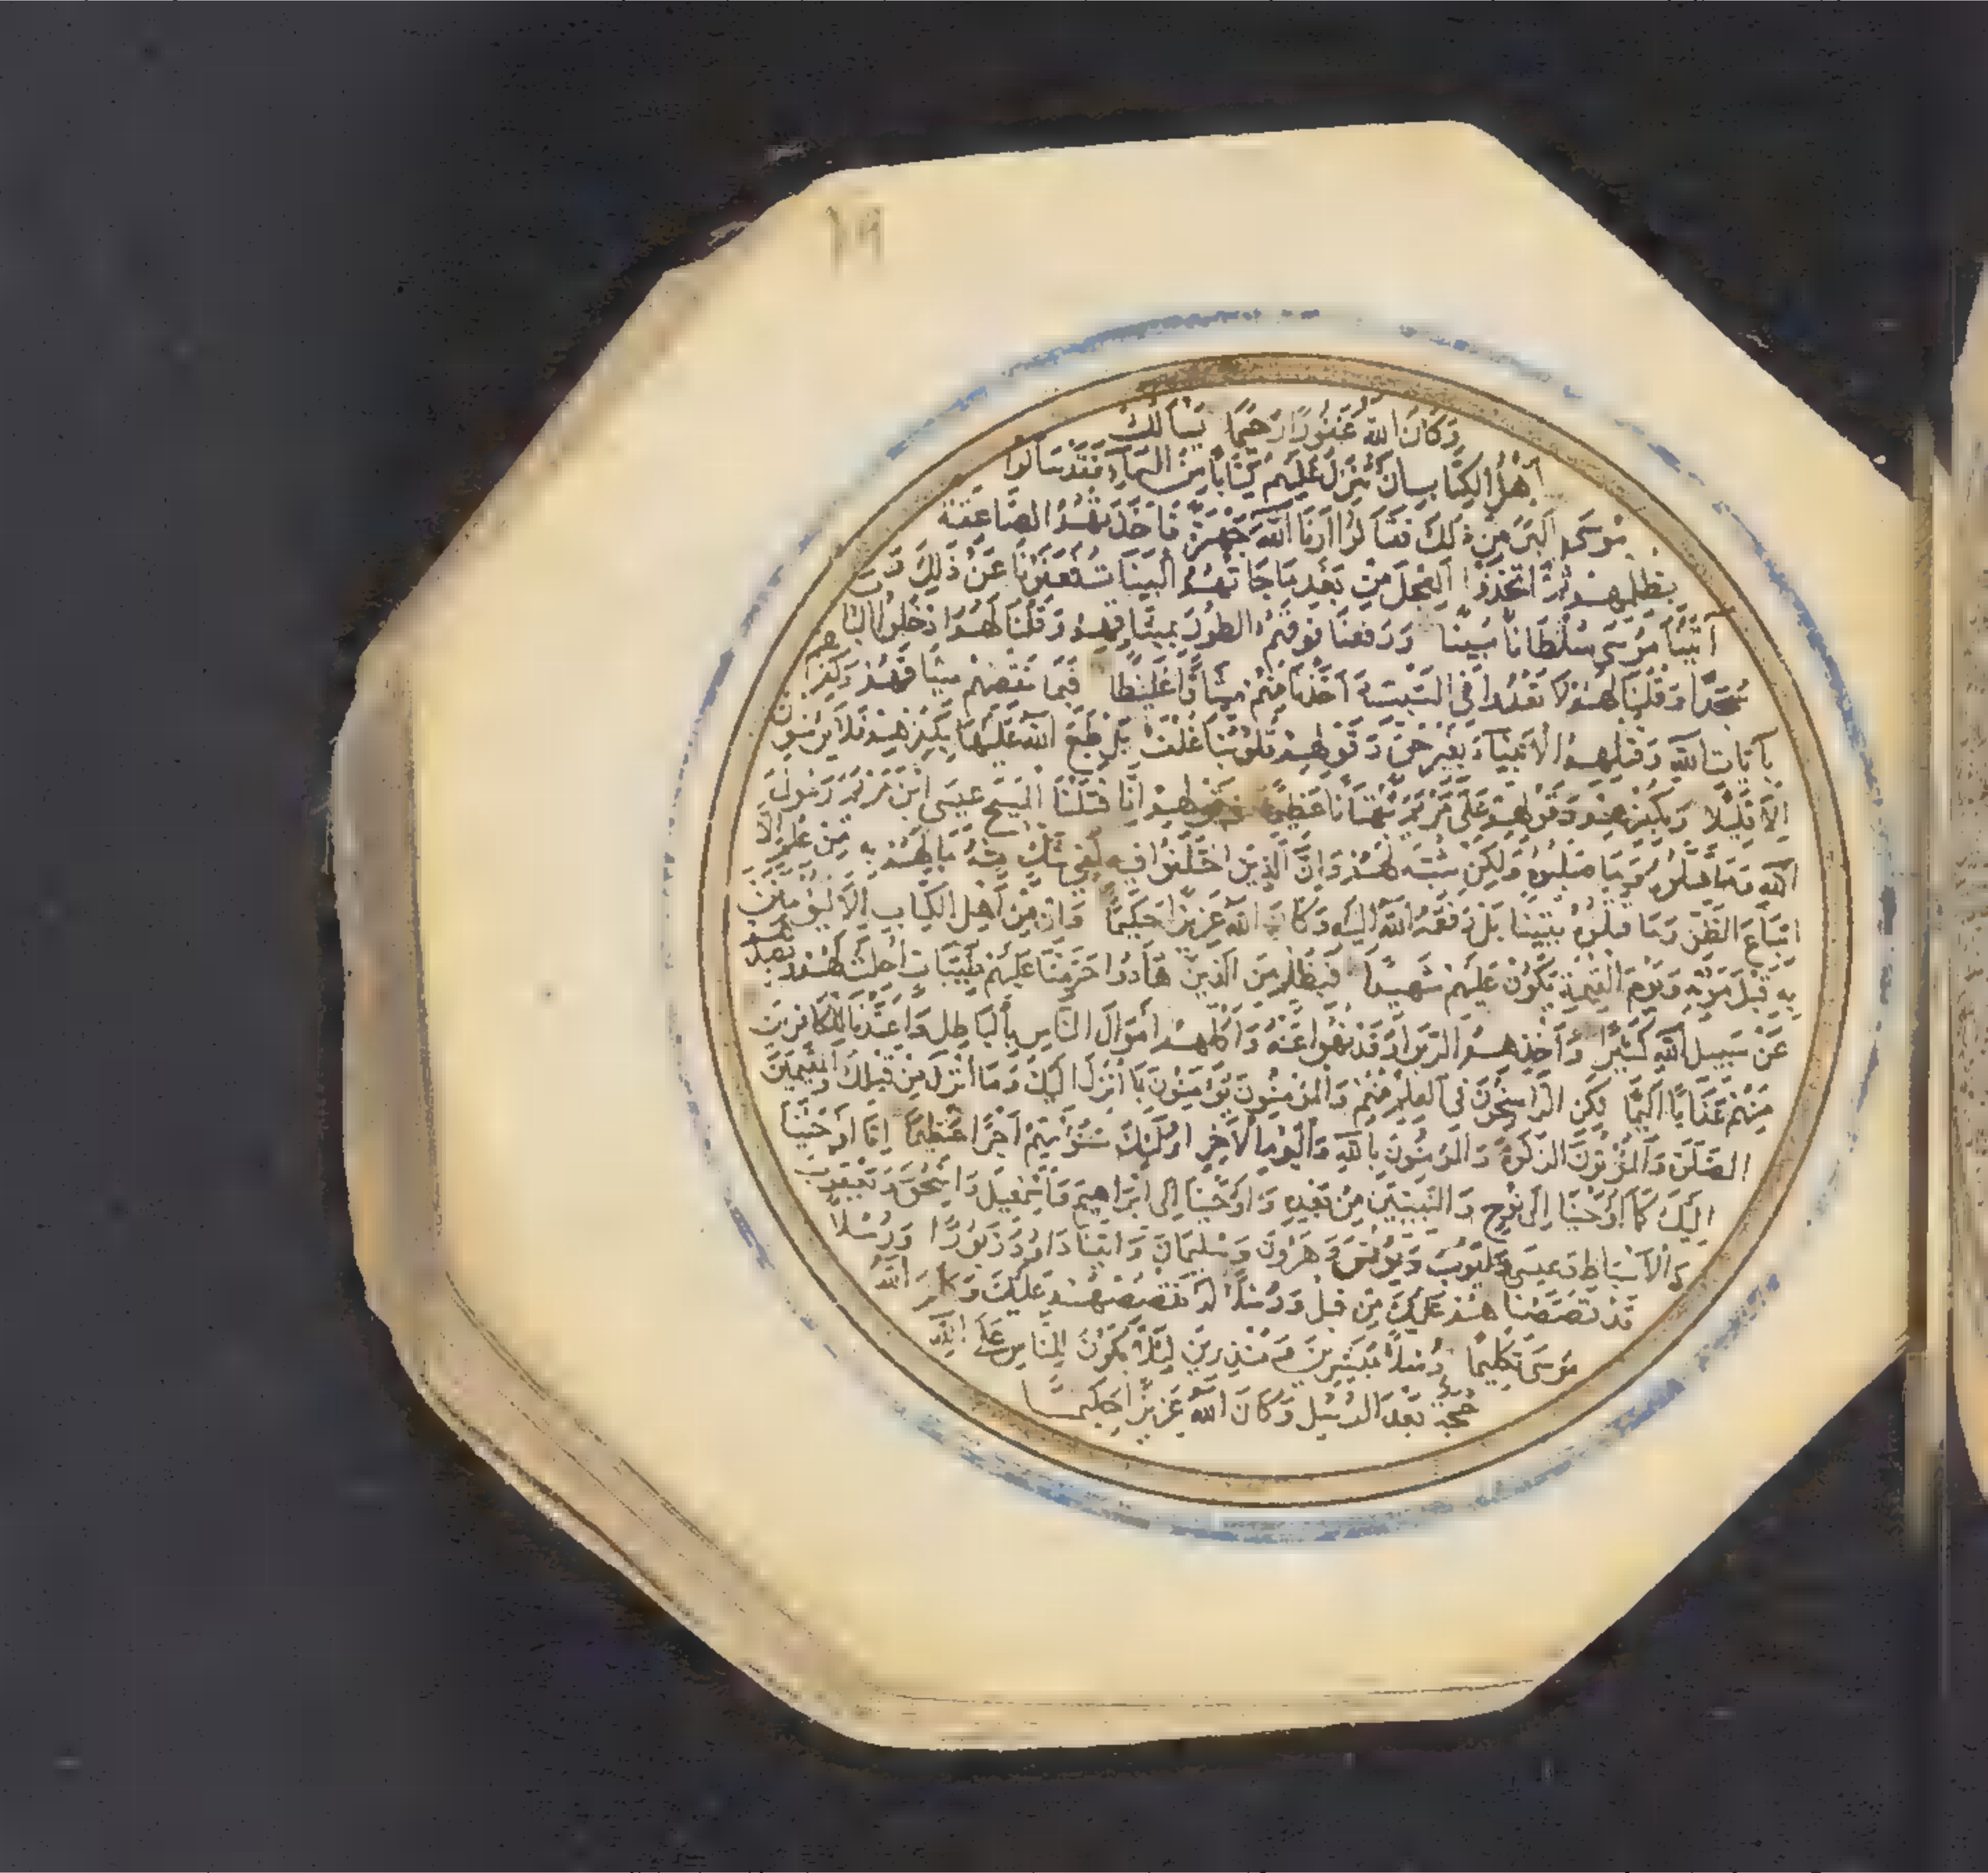 ١٩
وَكَانَ اللّٰهُ غَفُورًا رَحِيمًا يَسْأَلُكَ
أَهْلُ الْكِتَابِ أَنْ تُنَزِّلَ عَلَيْهِمْ كِتَابًا مِنَ السَّمَاءِ فَقَدْ سَأَلُوا
مُوسَى أَكْبَرَ مِنْ ذٰلِكَ فَقَالُوا أَرِنَا اللّٰهَ جَهْرَةً فَأَخَذَتْهُمُ الصَّاعِقَةُ
بِظُلْمِهِمْ ثُمَّ اتَّخَذُوا الْعِجْلَ مِنْ بَعْدِ مَا جَاءَتْهُمُ الْبَيِّنَاتُ فَعَفَوْنَا عَنْ ذٰلِكَ وَ
آتَيْنَا مُوسَى سُلْطَانًا مُبِينًا وَرَفَعْنَا فَوْقَهُمُ الطُّورَ بِمِيثَاقِهِمْ وَقُلْنَا لَهُمُ ادْخُلُوا الْبَابَ
سُجَّدًا وَقُلْنَا لَهُمْ لَا تَعْدُوا فِي السَّبْتِ وَأَخَذْنَا مِنْهُمْ مِيثَاقًا غَلِيظًا فَبِمَا نَقْضِهِمْ مِيثَاقَهُمْ وَكُفْرِهِمْ
بِآيَاتِ اللّٰهِ وَقَتْلِهِمُ الْأَنْبِيَاءَ بِغَيْرِ حَقٍّ وَقَوْلِهِمْ قُلُوبُنَا غُلْفٌ بَلْ طَبَعَ اللّٰهُ عَلَيْهَا بِكُفْرِهِمْ فَلَا يُؤْمِنُونَ
إِلَّا قَلِيلًا وَبِكُفْرِهِمْ وَقَوْلِهِمْ عَلَى مَرْيَمَ بُهْتَانًا عَظِيمًا وَقَوْلِهِمْ إِنَّا قَتَلْنَا الْمَسِيحَ عِيسَى ابْنَ مَرْيَمَ رَسُولَ
اللّٰهِ وَمَا قَتَلُوهُ وَمَا صَلَبُوهُ وَلٰكِنْ شُبِّهَ لَهُمْ وَإِنَّ الَّذِينَ اخْتَلَفُوا فِيهِ لَفِي شَكٍّ مِنْهُ مَا لَهُمْ بِهِ مِنْ عِلْمٍ إِلَّا
اتِّبَاعَ الظَّنِّ وَمَا قَتَلُوهُ يَقِينًا بَلْ رَفَعَهُ اللّٰهُ إِلَيْهِ وَكَانَ اللّٰهُ عَزِيزًا حَكِيمًا وَإِنْ مِنْ أَهْلِ الْكِتَابِ إِلَّا لَيُؤْمِنَنَّ
بِهِ قَبْلَ مَوْتِهِ وَيَوْمَ الْقِيٰمَةِ يَكُونُ عَلَيْهِمْ شَهِيدًا فَبِظُلْمٍ مِنَ الَّذِينَ هَادُوا حَرَّمْنَا عَلَيْهِمْ طَيِّبَاتٍ أُحِلَّتْ لَهُمْ وَبِصَدِّهِمْ
عَنْ سَبِيلِ اللّٰهِ كَثِيرًا وَأَخْذِهِمُ الرِّبَوا وَقَدْ نُهُوا عَنْهُ وَأَكْلِهِمْ أَمْوَالَ النَّاسِ بِالْبَاطِلِ وَأَعْتَدْنَا لِلْكَافِرِينَ
مِنْهُمْ عَذَابًا أَلِيمًا لٰكِنِ الرَّاسِخُونَ فِي الْعِلْمِ مِنْهُمْ وَالْمُؤْمِنُونَ يُؤْمِنُونَ بِمَا أُنْزِلَ إِلَيْكَ وَمَا أُنْزِلَ مِنْ قَبْلِكَ وَالْمُقِيمِينَ
الصَّلٰوةَ وَالْمُؤْتُونَ الزَّكٰوةَ وَالْمُؤْمِنُونَ بِاللّٰهِ وَالْيَوْمِ الْآخِرِ أُولٰئِكَ سَنُؤْتِيهِمْ أَجْرًا عَظِيمًا إِنَّا أَوْحَيْنَا
إِلَيْكَ كَمَا أَوْحَيْنَا إِلَى نُوحٍ وَالنَّبِيِّينَ مِنْ بَعْدِهِ وَأَوْحَيْنَا إِلَى إِبْرَاهِيمَ وَإِسْمٰعِيلَ وَإِسْحٰقَ وَيَعْقُوبَ
وَالْأَسْبَاطِ وَعِيسَى وَأَيُّوبَ وَيُونُسَ وَهٰرُونَ وَسُلَيْمَانَ وَآتَيْنَا دَاوُدَ زَبُورًا وَرُسُلًا
قَدْ قَصَصْنَاهُمْ عَلَيْكَ مِنْ قَبْلُ وَرُسُلًا لَمْ نَقْصُصْهُمْ عَلَيْكَ وَكَلَّمَ اللّٰهُ
مُوسَى تَكْلِيمًا رُسُلًا مُبَشِّرِينَ وَمُنْذِرِينَ لِئَلَّا يَكُونَ لِلنَّاسِ عَلَى اللّٰهِ
حُجَّةٌ بَعْدَ الرُّسُلِ وَكَانَ اللّٰهُ عَزِيزًا حَكِيمًا